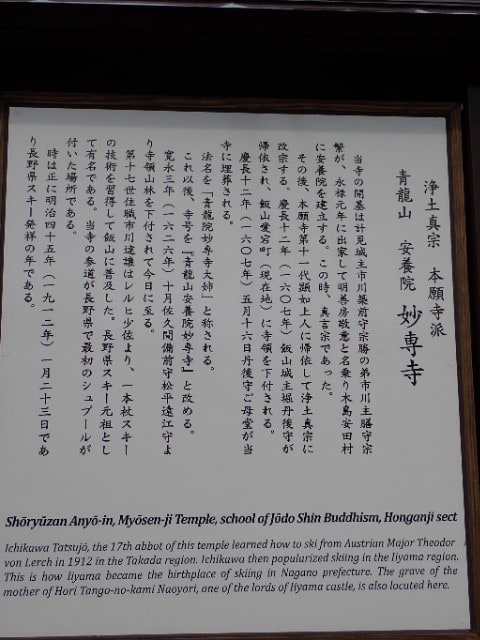 浄土真宗 本願寺派
青龍山 安養院 妙専寺
当寺の開基は計見城主市川築前守宗勝の弟市川主膳守宗
繁が、永禄元年に出家して明善房敬意と名乗り木島安田村
に安養院を建立する。この時、真言宗であった。
その後、本願寺第十一代顕如上人に帰依して浄土真宗に
改宗する。慶長十二年(一六〇七年)飯山城主堀丹後守が
帰依され、飯山愛宕町(現在地)に寺領を下付される。
慶長十二年(一六〇七年)五月十六日丹後守ご母堂が当
寺に埋葬される。
法名を「青龍院妙専寺大姉」と称される。
これ以後、寺号を『青龍山安養院妙専寺』と改める。
寛永三年(一六二六年)十月佐久間備前守松平遠江守よ
り寺領山林を下付されて今日に至る。
第十七世住職市川達譲はレルヒ少佐より、一本杖スキー
の技術を習得して飯山に普及した。長野県スキー元祖とし
て有名である。当寺の参道が長野県で最初のシュプールが
付いた場所である。
時は正に明治四十五年(一九一二年)一月二十三日であ
り長野県スキー発祥の年である。
Shōryūzan Anyō-in, Myōsen-ji Temple, school of Jōdo Shin Buddhism, Honganji sect
Ichikawa Tatsujō, the 17th abbot of this temple learned how to ski from Austrian Major Theodor
von Lerch in 1912 in the Takada region. Ichikawa then popularized skiing in the Iiyama region.
This is how Iiyama became the birthplace of skiing in Nagano prefecture. The grave of the
mother of Hori Tango-no-kami Naoyori, one of the lords of Iiyama castle, is also located here.